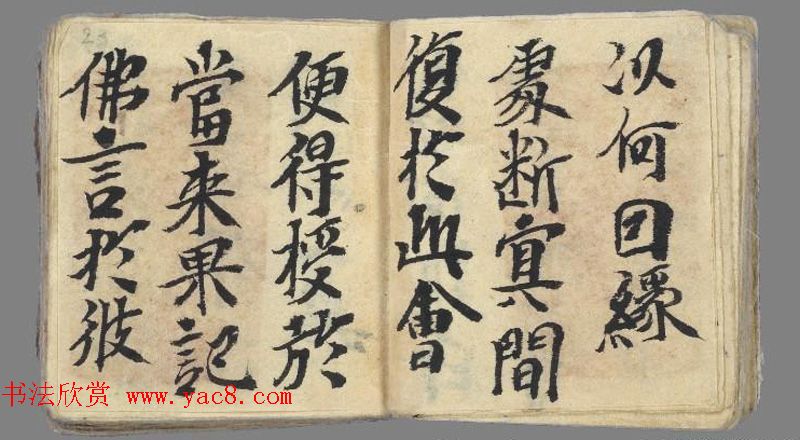 以何因緣
處断冥間
復於此會
便得授於
當来果記
佛言於彼
23
书法欣赏 www.yac8.com